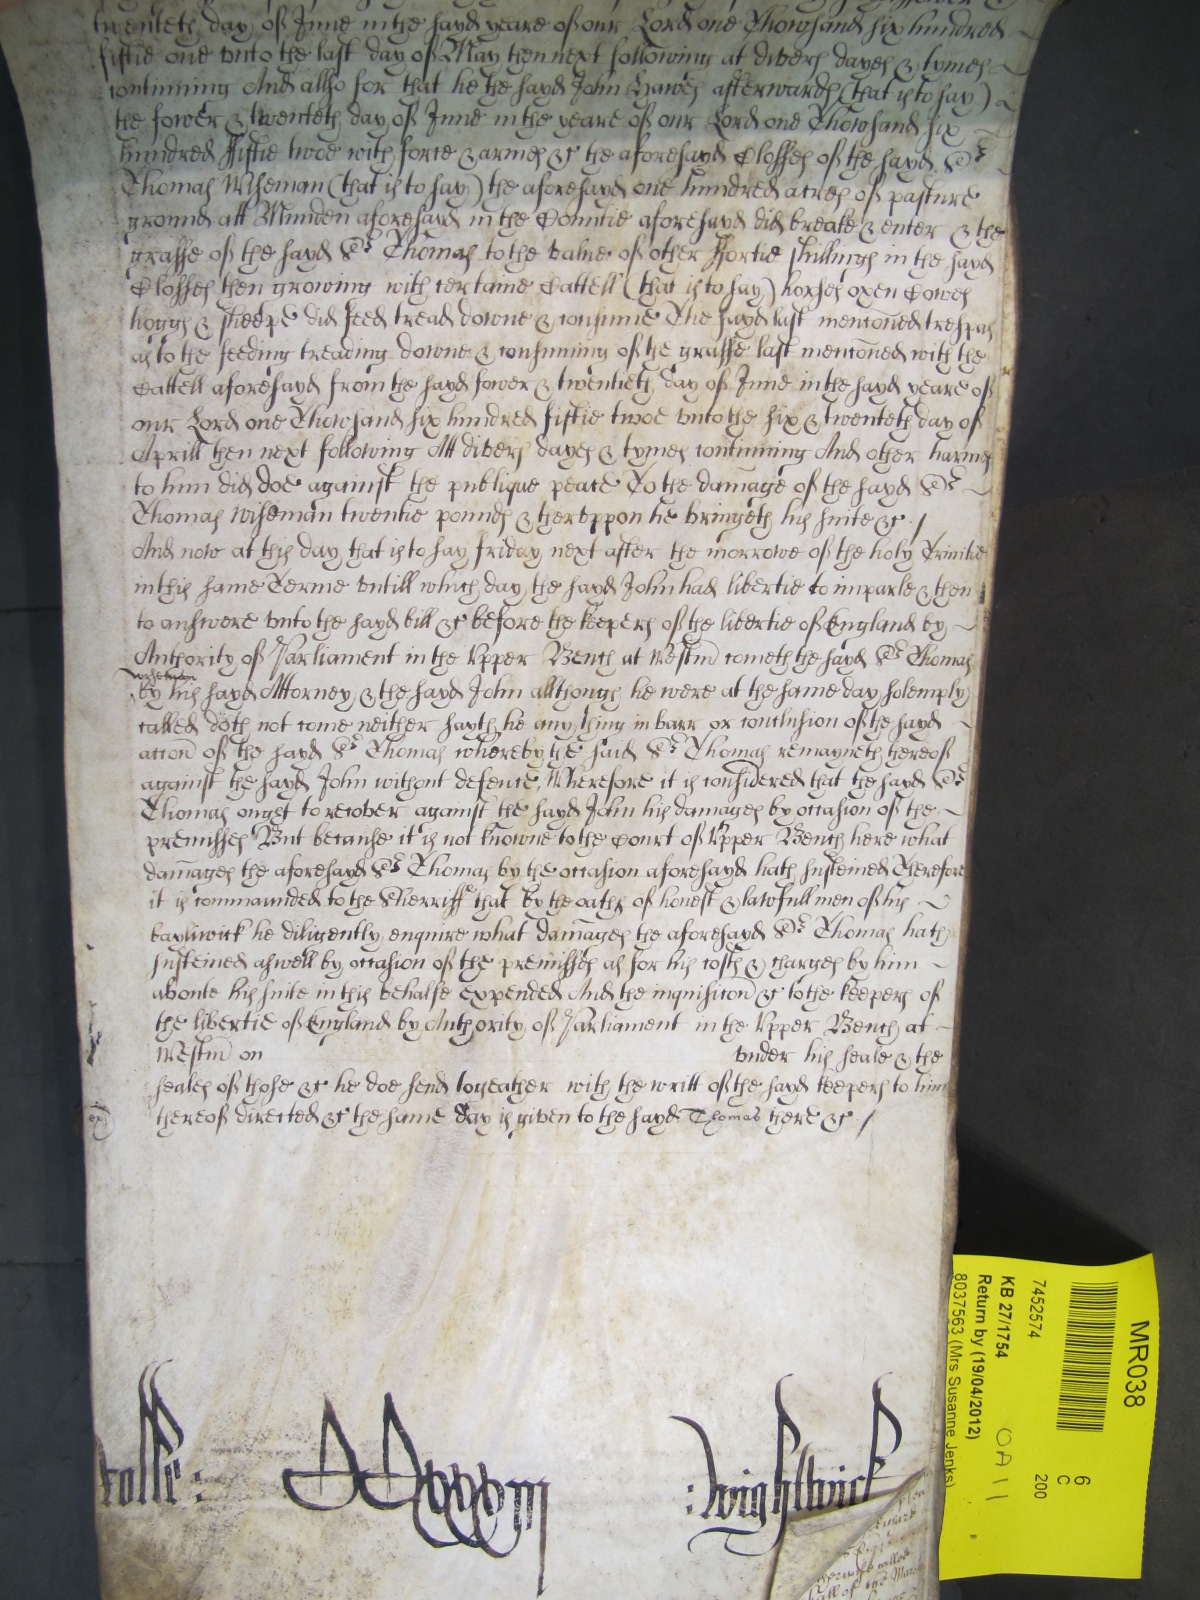 twenteth day of June in the sayd yeare of our Lord one Thowsand six hundred
fiftie one vnto the last day of May then next following at divers dayes & tymes
continuing And allso for that he the sayd John Hawes afterwards (that is to say)
the fower & twenteth day of June in the yeare of our Lord one Thowsand six
hundred fiftie twoe with force & armes &c the aforesayd Closses of the sayd Sr
Thomas Wiseman (that is to say) the aforesayd one hundred acres of pasture
ground att Munden aforesayd in the Countie aforesayd did breake & enter & the
grasse of the sayd Sr Thomas to the value of other Fortie shillings in the sayd
Closses then growing with certaine Cattell (that is to say) horses oxen Cowes
hoggs & sheepe did feed tread downe & consume The sayd last mencōned trespas
as to the feeding treading downe & consuming of the grasse last mencōned with the
Cattell aforesayd from the sayd fower & twentieth day of June in the sayd yeare of
our Lord one Thowsand six hundred fiftie twoe vnto the six & twenteth day of
Aprill then next following Att divers dayes & tymes continuing And other harmes
to him did doe against the publique peace To the damage of the sayd Sr
Thomas Wiseman twentie pounds & thereuppon he bringeth his suite &c /
And now at this day that is to say Friday next after the morrowe of the holy Trinitie
in this same Terme vntill which day the sayd John had libertie to imparle & then
to answere vnto the sayd bill &c before the keepers of the libertie of England by
Authority of Parliament in the Vpper Bench at Westm̄ cometh the sayd Sr Thomas
Wiseman
by his sayd Attorney & the sayd John allthough he were at the same day solemply
called doth not come neither sayth he any thing in barr or conclusion of the sayd
accōn of the sayd Sr Thomas whereby the said Sr Thomas remayneth thereof
against the sayd John without defence, Wherefore it is considered that the sayd Sr
Thomas ought to recover against the sayd John his damages by occasion of the
premisses But because it is not knowne to the Court of Vpper Bench here what
damages the aforesayd Sr Thomas by the occasion aforesayd hath susteined Therefore
it is commaunded to the Sherriff that by the oaths of honest & lawfull men of his
bayliwick he diligently enquire what damages the aforesayd Sr Thomas hath
susteined aswell by occasion of the premisses as for his costs & charges by him
aboute his suite in this behalfe expended And the inquisicōn &c to the keepers of
the libertie of England by Authority of Parliament in the Vpper Bench at
Westm̄ on vnder his seale & the
seales of those &c he doe send togeather with the writt of the sayd keepers to him
thereof directed &c the same day is given to the sayd Thomas there &c /
:Wightwick
MR038
6
C
200
7452574
KB 27/1754
OA11
Return by (19/04/2012)
8037563 (Mrs Susanne Jenks)